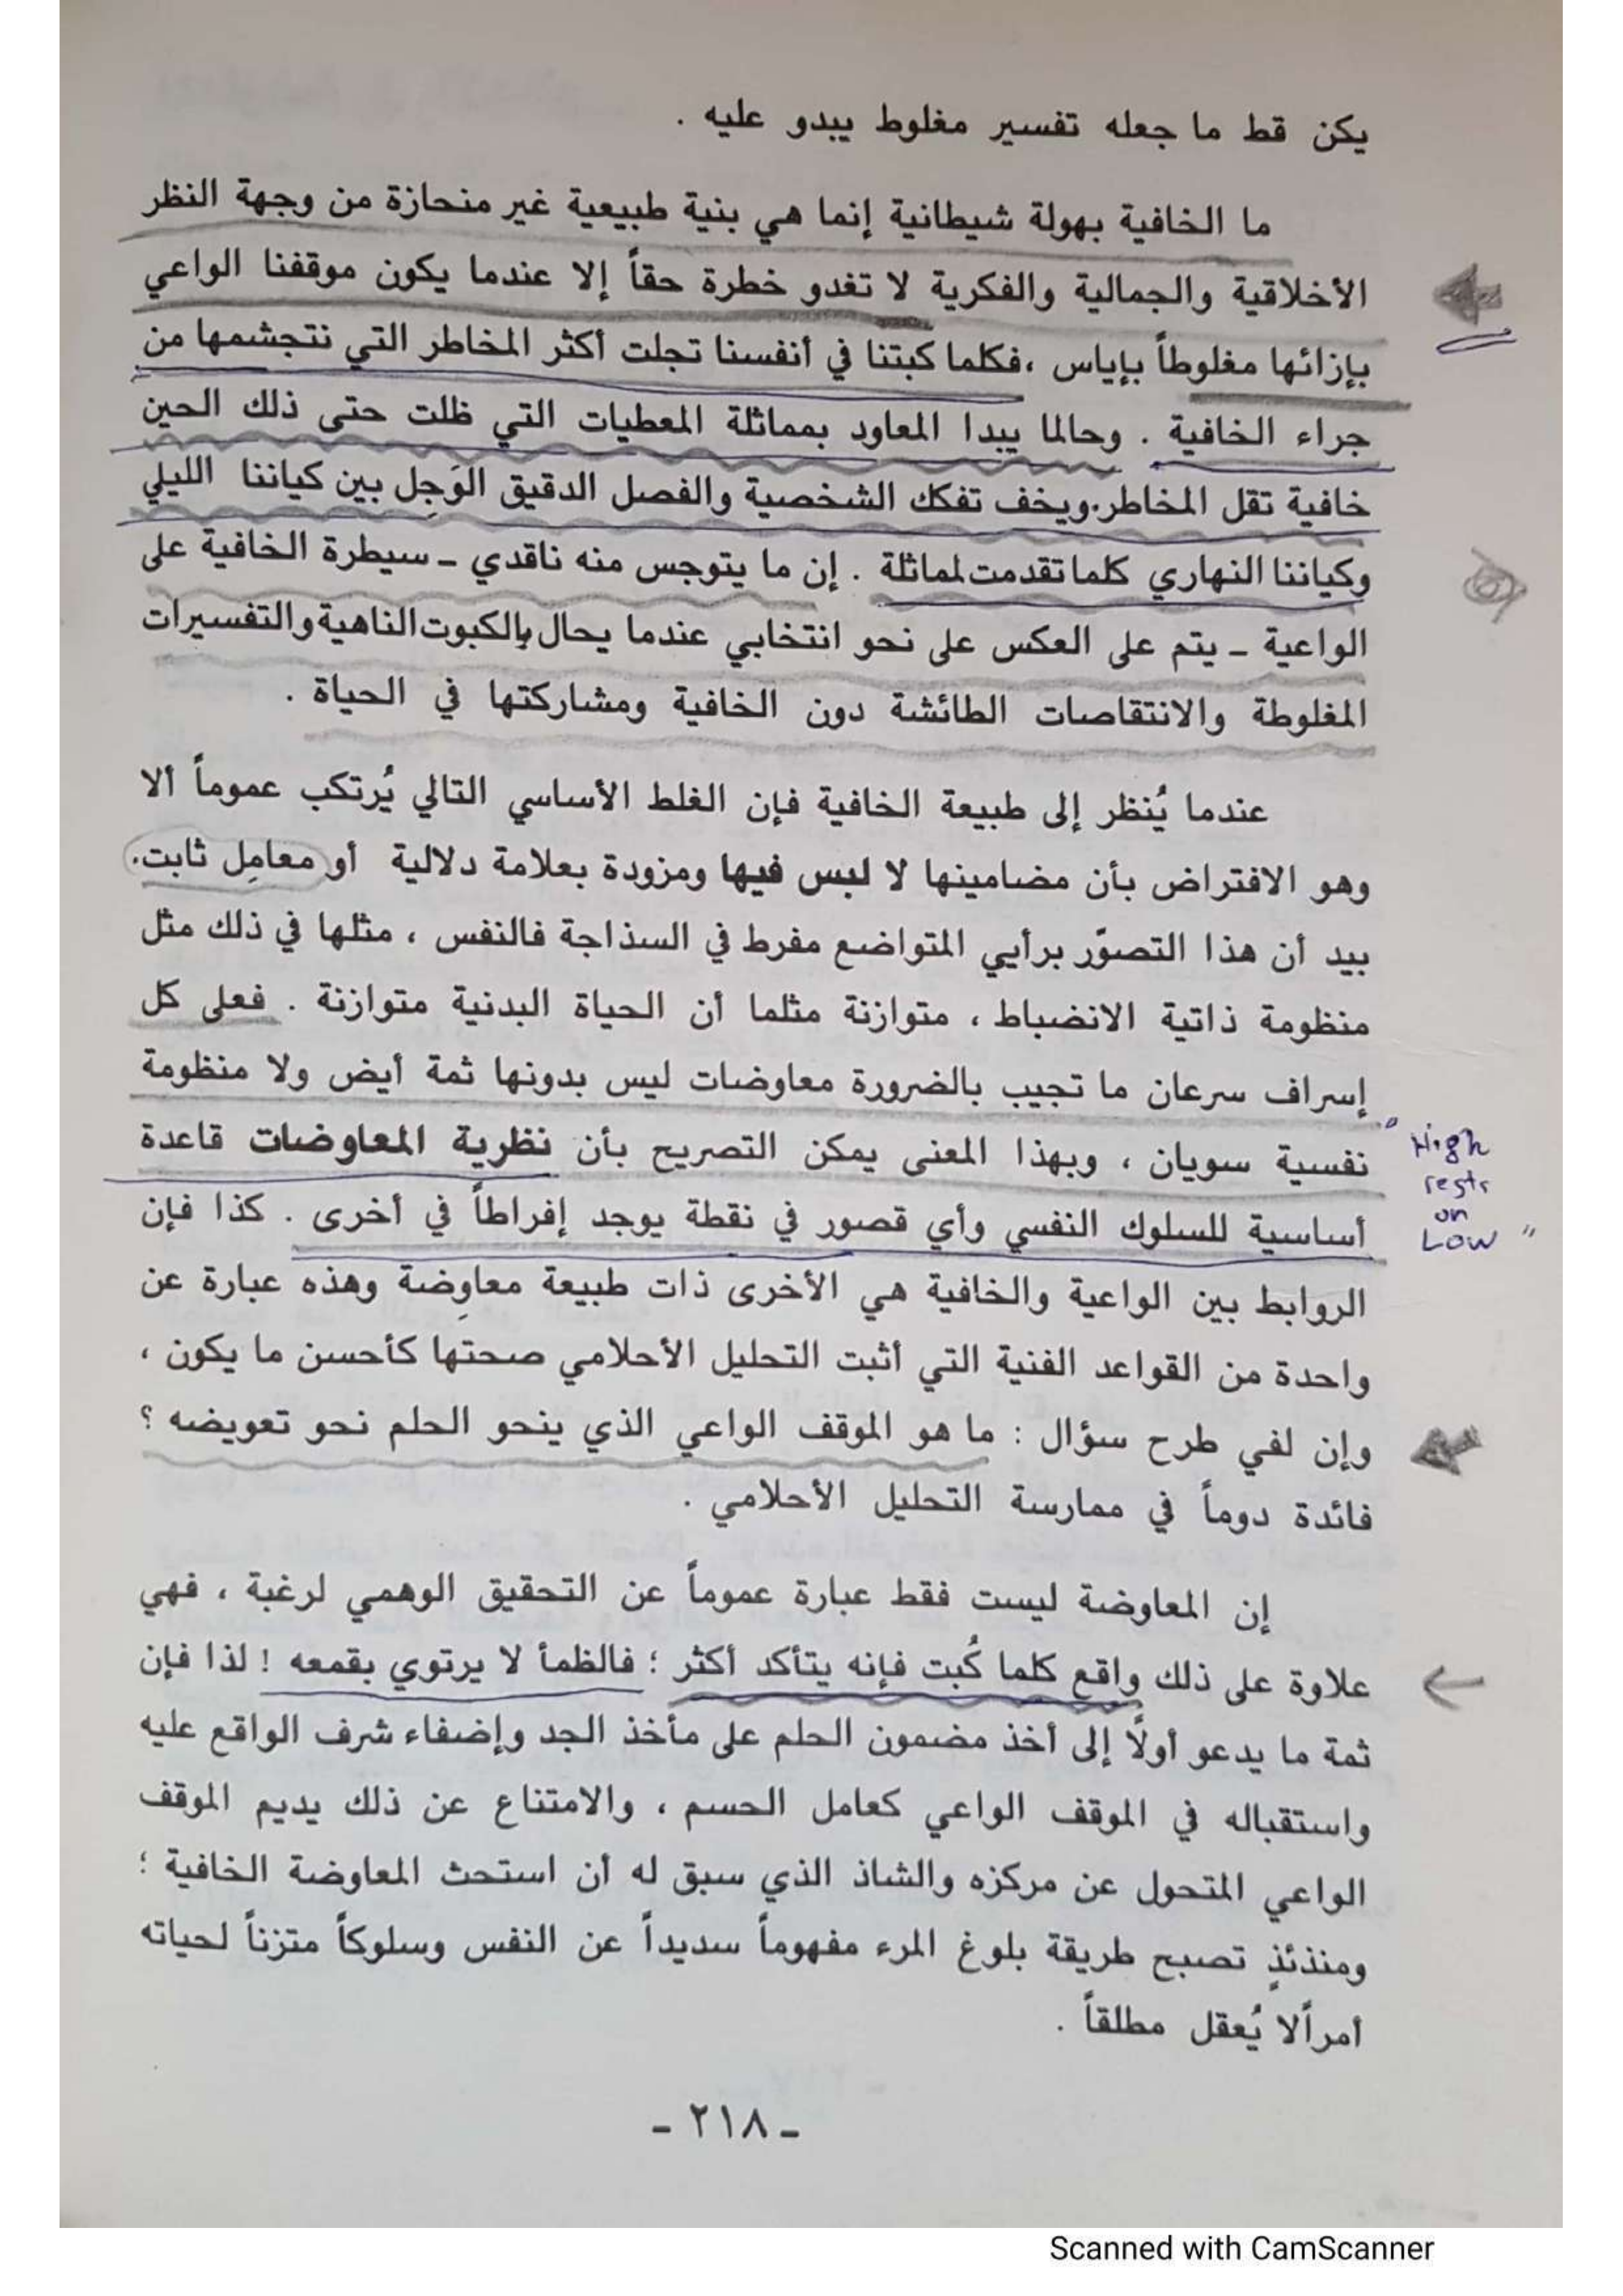 يكن قط ما جعله تفسير مغلوط يبدو عليه .
ما الخافية بهولة شيطانية إنما هي بنية طبيعية غير منحازة من وجهة النظر
الأخلاقية والجمالية والفكرية لا تغدو خطرة حقاً إلا عندما يكون موقفنا الواعي
بإزائها مغلوطاً بإياس ،فكلما كبتنا في أنفسنا تجلت أكثر المخاطر التي نتجشمها من
جراء الخافية . وحالما يبدا المعاود بمماثلة المعطيات التي ظلت حتى ذلك الحين
خافية تقل المخاطر.ويخف تفكك الشخصية والفصل الدقيق الوَجِل بين كياننا الليلي
وكياننا النهاري كلما تقدمت لمماثلة . إن ما يتوجس منه ناقدي ـ سيطرة الخافية على
الواعية ـ يتم على العكس على نحو انتخابي عندما يحال بالكبوت الناهية والتفسيرات
المغلوطة والانتقاصات الطائشة دون الخافية ومشاركتها في الحياة .
عندما يُنظر إلى طبيعة الخافية فإن الغلط الأساسي التالي يُرتكب عموماً ألا
وهو الافتراض بأن مضامينها لا لبس فيها ومزودة بعلامة دلالية أو معامِل ثابت.
بيد أن هذا التصوّر برأيي المتواضع مفرط في السذاجة فالنفس ، مثلها في ذلك مثل
منظومة ذاتية الانضباط ، متوازنة مثلما أن الحياة البدنية متوازنة . فعلى كل
إسراف سرعان ما تجيب بالضرورة معاوضات ليس بدونها ثمة أيض ولا منظومة
نفسية سويان ، وبهذا المعنى يمكن التصريح بأن نظرية المعاوضات قاعدة
أساسية للسلوك النفسي وأي قصور في نقطة يوجد إفراطاً في أخرى . كذا فإن
الروابط بين الواعية والخافية هي الأخرى ذات طبيعة معاوِضة وهذه عبارة عن
واحدة من القواعد الفنية التي أثبت التحليل الأحلامي صحتها كأحسن ما يكون ،
وإن لفي طرح سؤال : ما هو الموقف الواعي الذي ينحو الحلم نحو تعويضه ؟
فائدة دوماً في ممارسة التحليل الأحلامي .
إن المعاوضة ليست فقط عبارة عموماً عن التحقيق الوهمي لرغبة ، فهي
علاوة على ذلك واقع كلما كُبت فإنه يتأكد أكثر ؛ فالظمأ لا يرتوي بقمعه ! لذا فإن
ثمة ما يدعو أولًا إلى أخذ مضمون الحلم على مأخذ الجد وإضفاء شرف الواقع عليه
واستقباله في الموقف الواعي كعامل الحسم ، والامتناع عن ذلك يديم الموقف
الواعي المتحول عن مركزه والشاذ الذي سبق له أن استحث المعاوضة الخافية ؛
ومنذئذٍ تصبح طريقة بلوغ المرء مفهوماً سديداً عن النفس وسلوكاً متزناً لحياته
امراًلا يُعقل مطلقاً .
ـ ٢١٨ ـ
" High
rests
on
Low "
Scanned with CamScanner